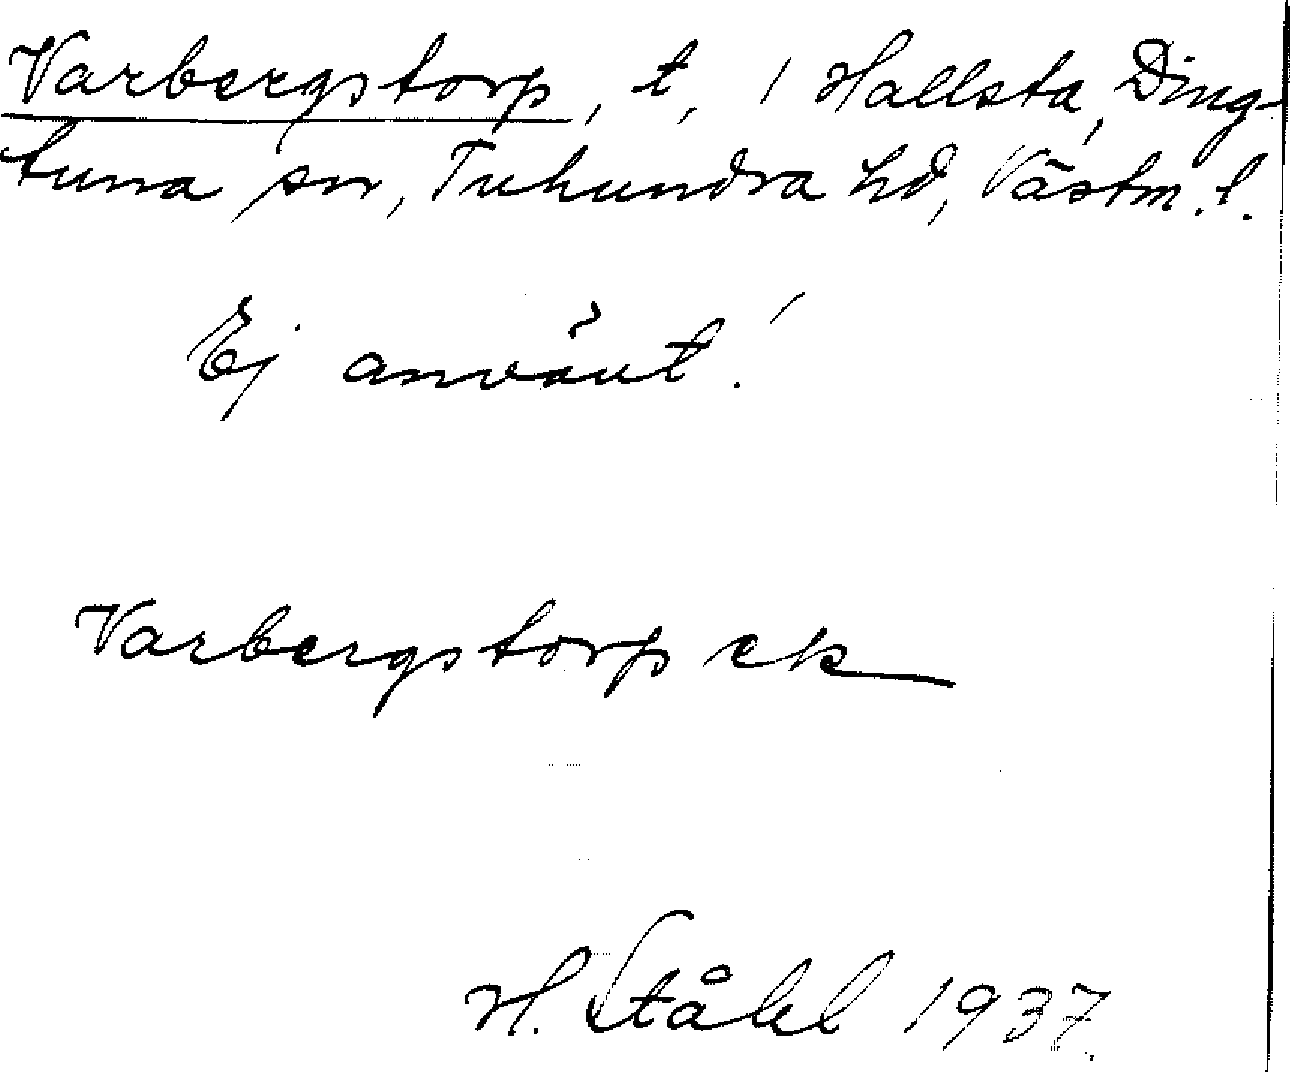 Varbergstorp, t, / Hallsta, Ding-
tuna sn, Tuhundra hd, Västm. l.
Ej använt!
Varbergstorp ek
H. Ståhl 1937.